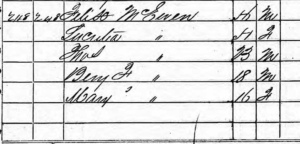 248 248 Felix McEwen M
Lucretia " F
Thos " 23 M
Benj F " 18 M
Mary " 16 F